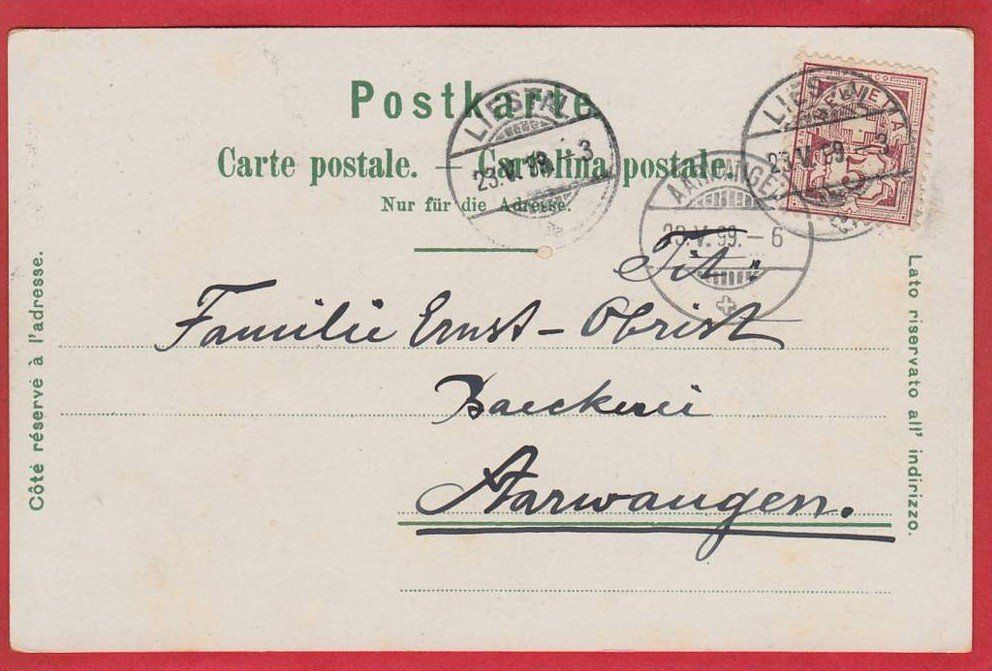 Postkarte
Carte postale. — Cartolina postale.
Nur für die Adresse.
LIESTAL
23.V.99.–3
LIESTAL
23.V.99.–3
HELVETIA
AARWANGEN
23.V.99.–6
Tit.
Familie Ernst-Obrist
Baeckerei
Aarwangen.
Côté réservé à l'adresse.
Lato riservato all' indirizzo.